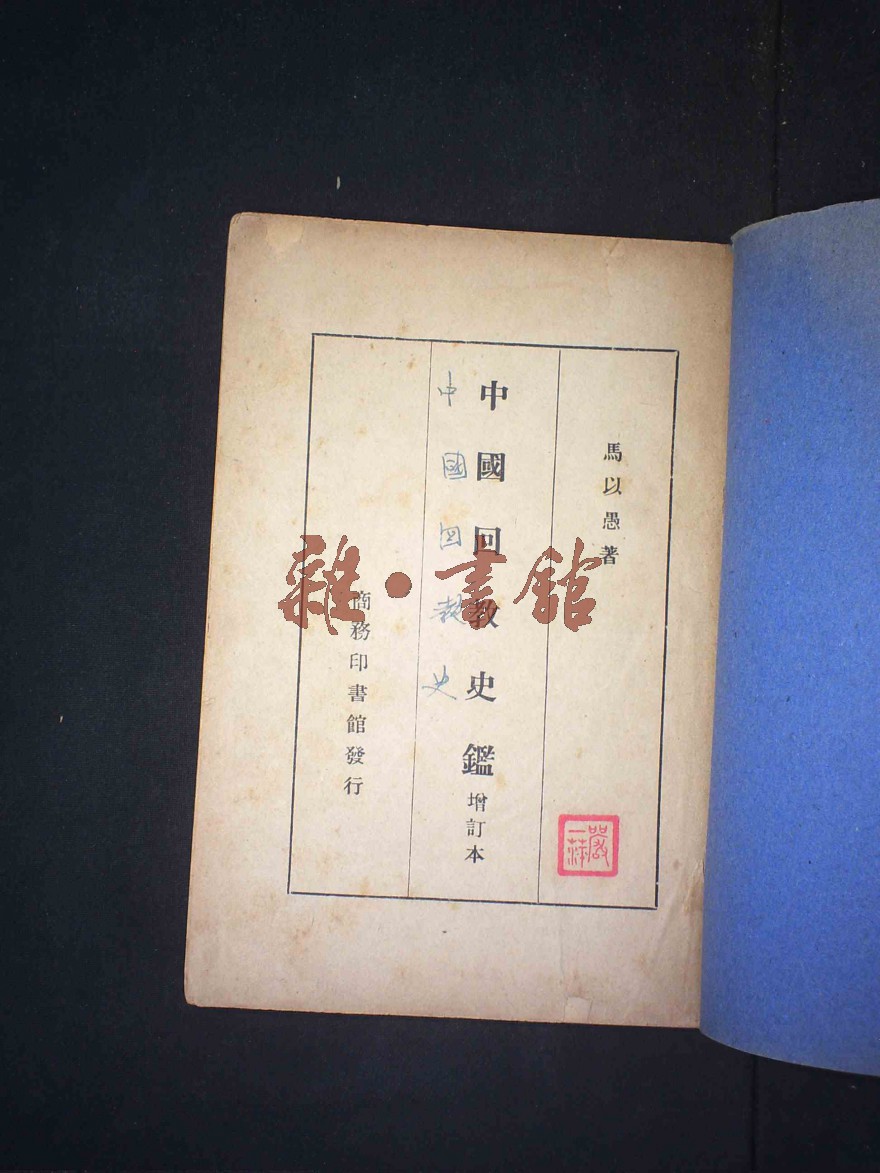 馬以愚著
中國回教史鑑 增訂本
中國回教史
商務印書館發行
嚴一萍
雜·書館